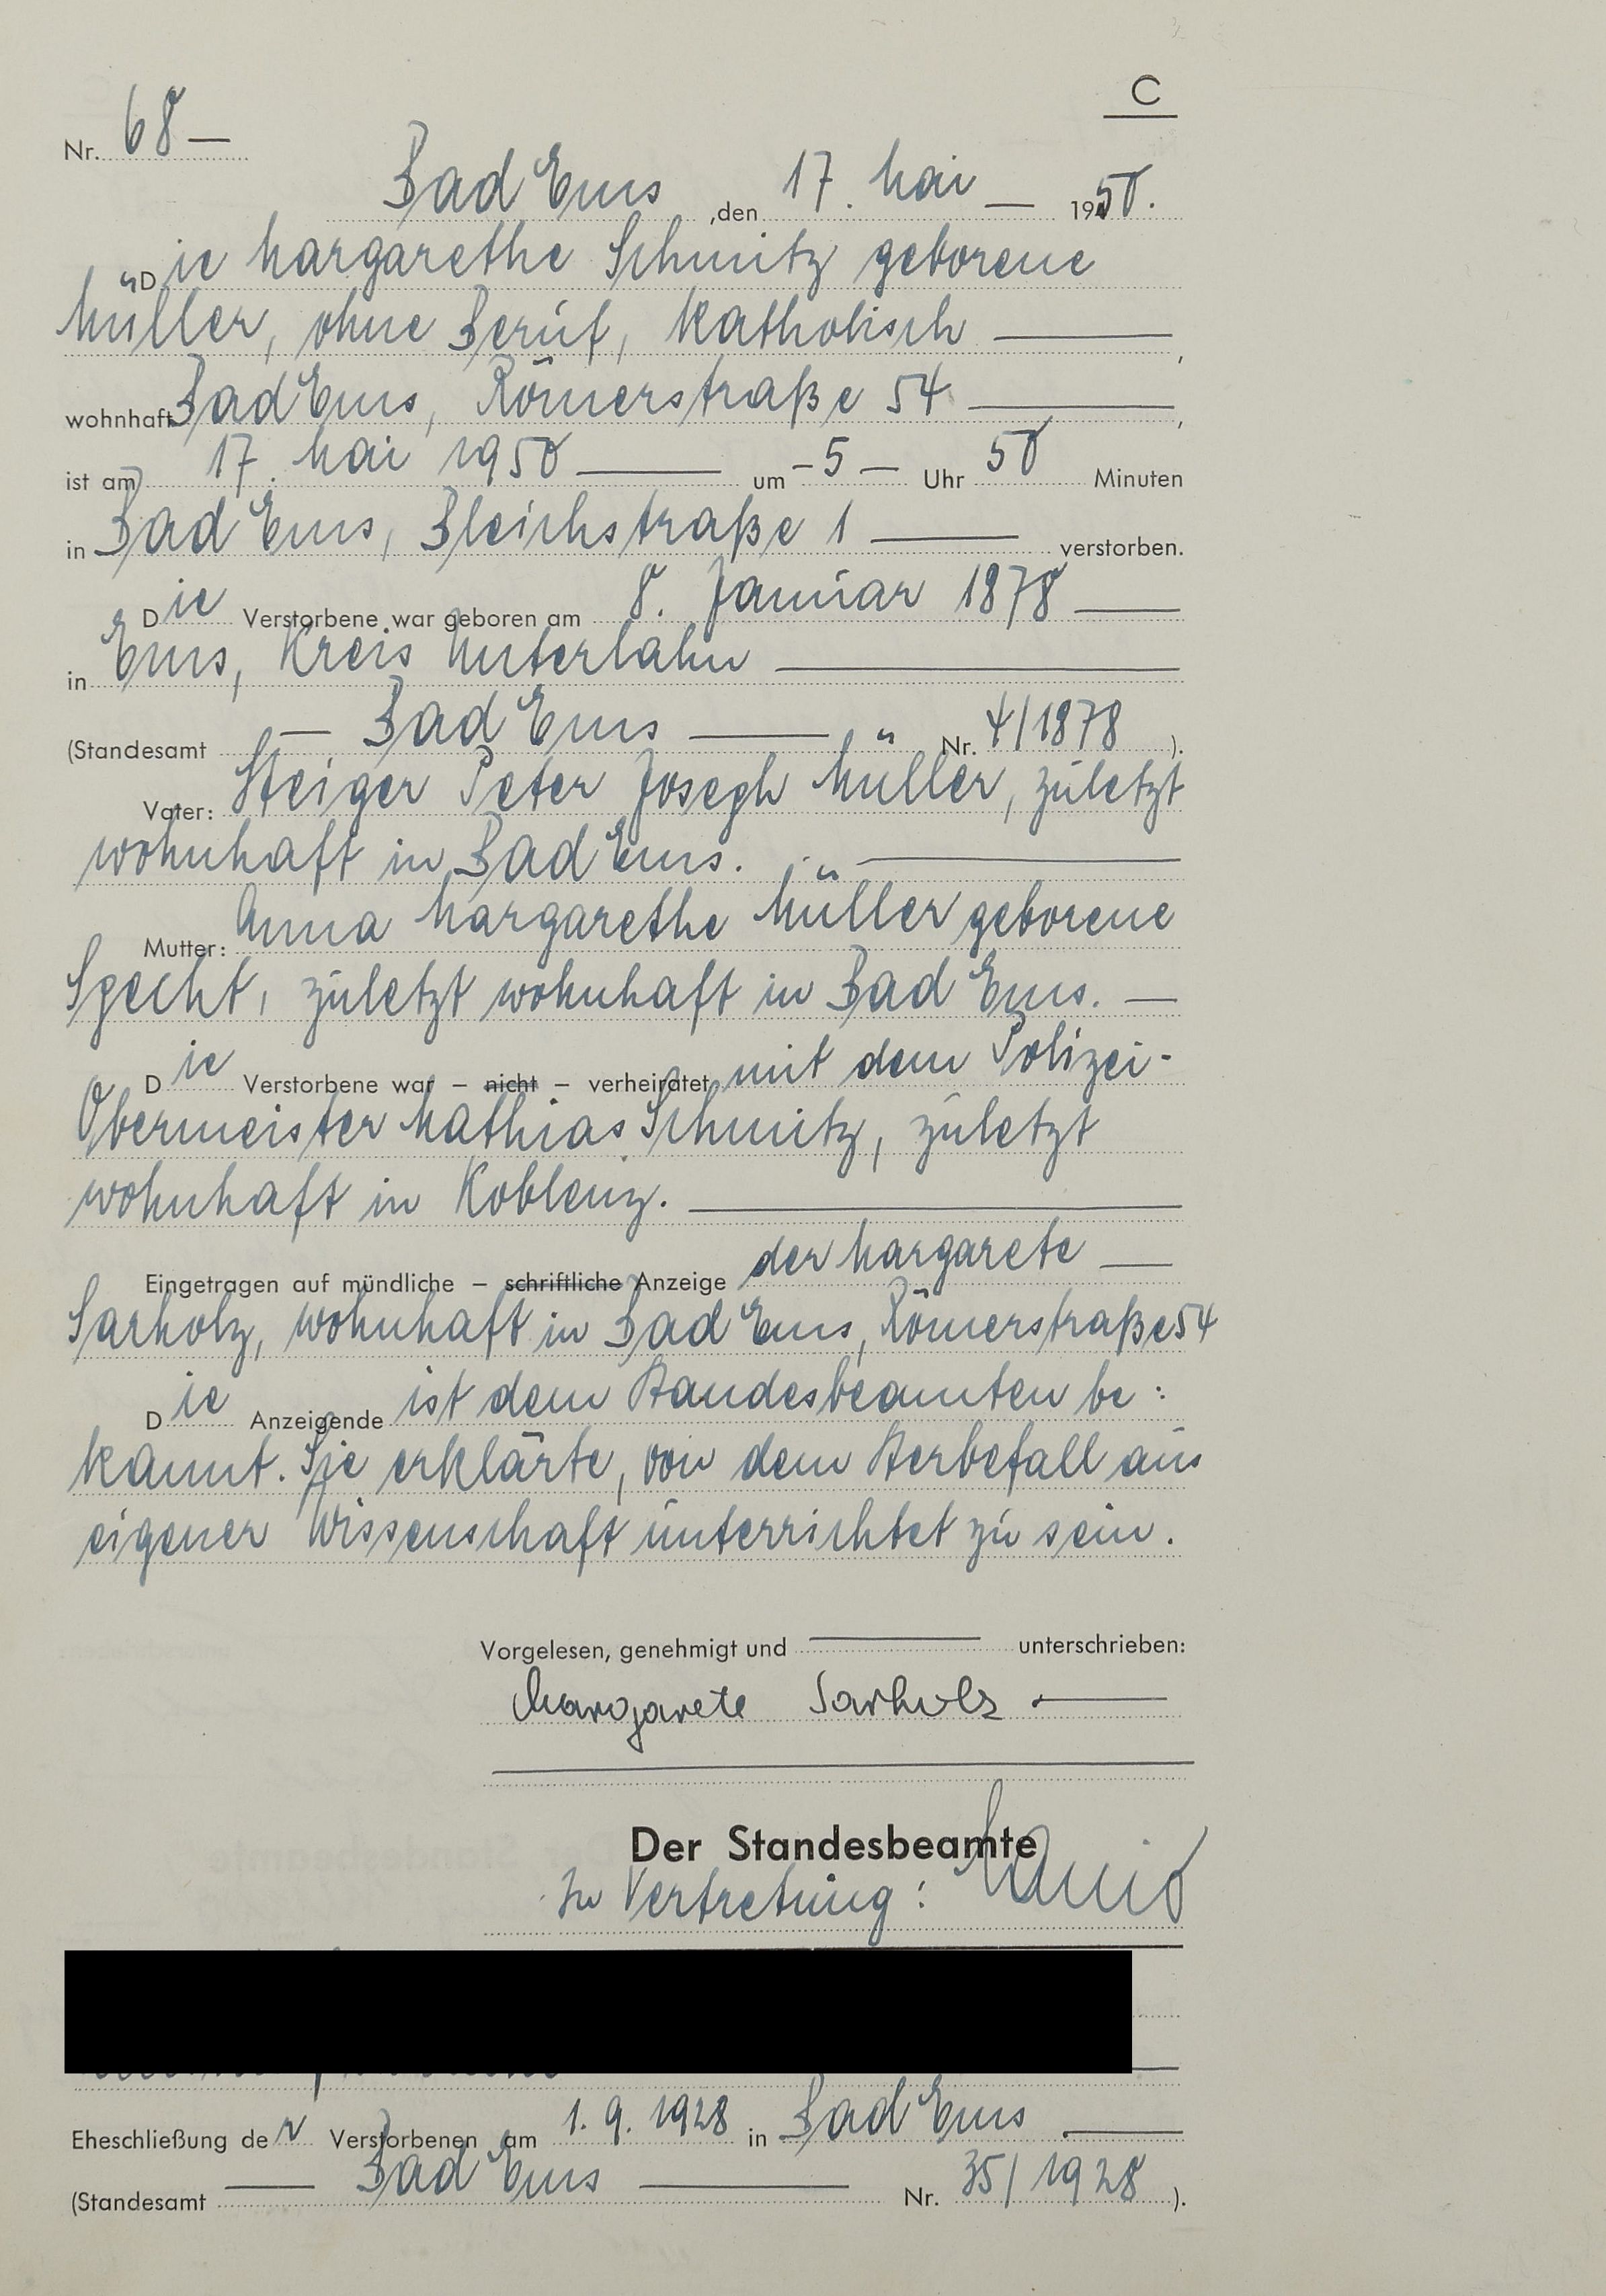 C
Nr. 68 —
Bad Ems, den 17. Mai — 1950.
Die Margarethe Schmitz geborene
Müller, ohne Beruf, katholisch —,
wohnhaft Bad Ems, Römerstraße 54 —,
ist am 17. Mai 1950 — um — 5 — Uhr 50 Minuten
in Bad Ems, Bleichstraße 1 — verstorben.
Die Verstorbene war geboren am 8. Januar 1878 —
in Ems, Kreis Unterlahn —
(Standesamt — Bad Ems — Nr. 4/1878).
Vater: Steiger Peter Joseph Müller, zuletzt
wohnhaft in Bad Ems. —
Mutter: Anna Margarethe Müller geborene
Specht, zuletzt wohnhaft in Bad Ems. —
Die Verstorbene war – nicht – verheiratet mit dem Polizei-
Obermeister Mathias Schmitz, zuletzt
wohnhaft in Koblenz. —
Eingetragen auf mündliche – schriftliche Anzeige der Margarete —
Sarholz, wohnhaft in Bad Ems, Römerstraße 54
Die Anzeigende ist dem Standesbeamten be:
kannt. Sie erklärte, von dem Sterbefall aus
eigener Wissenschaft unterrichtet zu sein.
Vorgelesen, genehmigt und — unterschrieben:
Margarete Sarholz —
Der Standesbeamte
In Vertretung:
Eheschließung der Verstorbenen am 1.9.1928 in Bad Ems —
(Standesamt — Bad Ems — Nr. 35/1928).